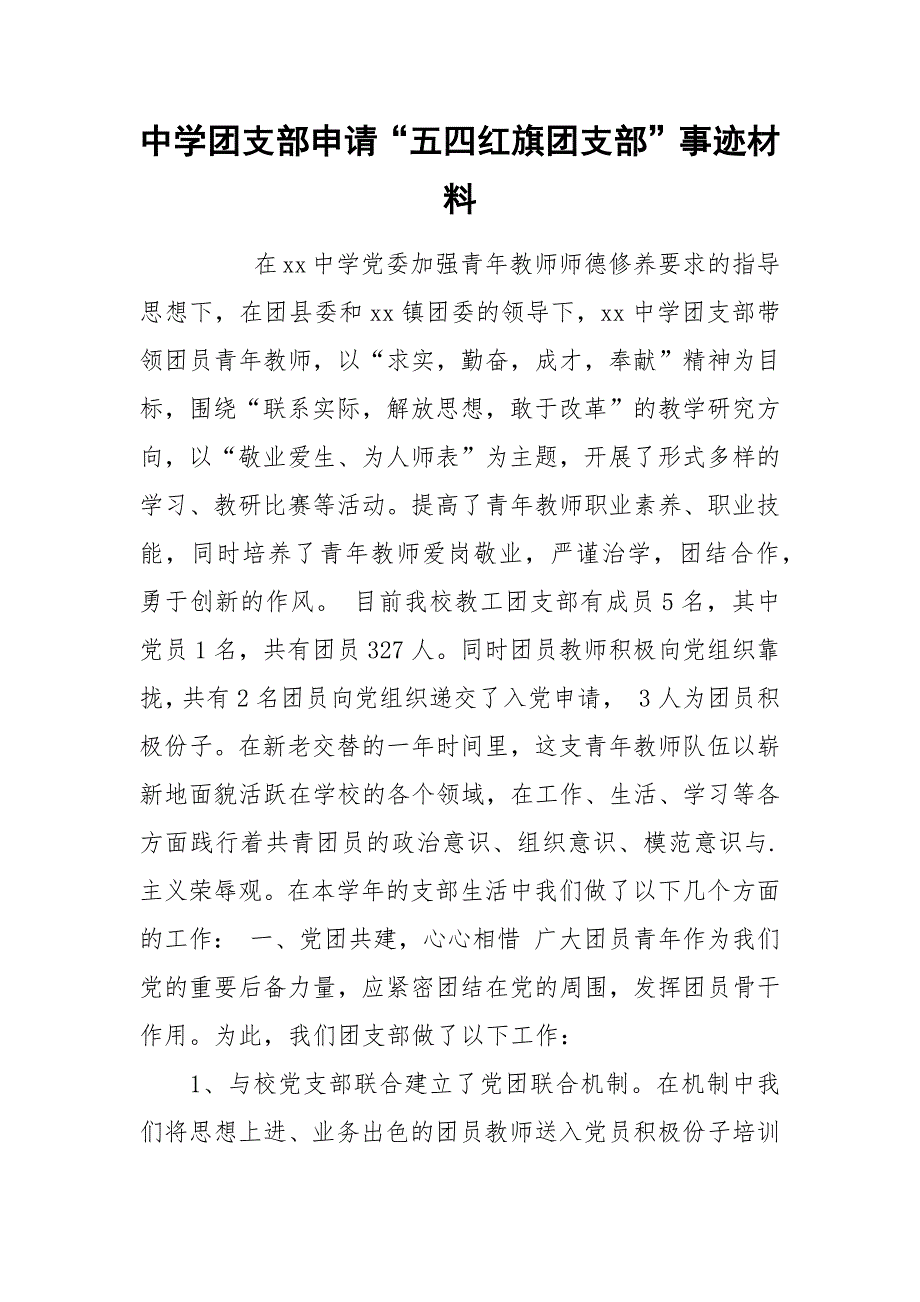 中学团支部申请“五四红旗团支部”事迹材
料
在 xx 中学党委加强青年教师师德修养要求的指导
思想下，在团县委和 xx 镇团委的领导下，xx 中学团支部带
领团员青年教师，以“求实，勤奋，成才，奉献”精神为目
标，围绕“联系实际，解放思想，敢于改革”的教学研究方
向，以“敬业爱生、为人师表”为主题，开展了形式多样的
学习、教研比赛等活动。提高了青年教师职业素养、职业技
能，同时培养了青年教师爱岗敬业，严谨治学，团结合作，
勇于创新的作风。 目前我校教工团支部有成员 5 名，其中
党员 1 名，共有团员 327 人。同时团员教师积极向党组织靠
拢，共有 2 名团员向党组织递交了入党申请， 3 人为团员积
极份子。在新老交替的一年时间里，这支青年教师队伍以崭
新地面貌活跃在学校的各个领域，在工作、生活、学习等各
方面践行着共青团员的政治意识、组织意识、模范意识与.
主义荣辱观。在本学年的支部生活中我们做了以下几个方面
的工作： 一、党团共建，心心相惜 广大团员青年作为我们
党的重要后备力量，应紧密团结在党的周围，发挥团员骨干
作用。为此，我们团支部做了以下工作：
1、与校党支部联合建立了党团联合机制。在机制中我
们将思想上进、业务出色的团员教师送入党员积极份子培训